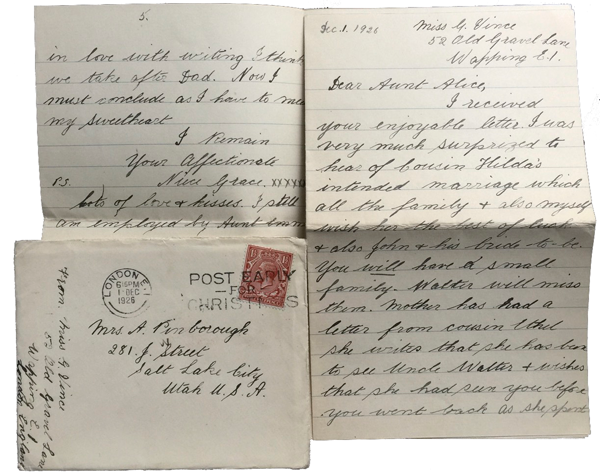 5.
in love with writing I think
we take after Dad. Now I
must conclude as I have to mee
my sweetheart
I Remain
Your Affectionate
Niece Grace. xxxxx
P.S.
Lots of love & kisses. I still
am employed by Aunt Emm
Dec. 1. 1926
Miss G. Vince
52 Old Gravel Lane
Wapping E.1.
Dear Aunt Alice,
I received
your enjoyable letter. I was
very much surprized to
hear of cousin Hilda's
intended marriage which
all the family & also myself
wish her the best of luck
& also John & his bride-to-be.
You will have a small
family. Walter will miss
them. Mother has had a
letter from cousin Ethel
she writes that she has been
to see Uncle Walter & wishes
that she had seen you before
you went back as she spent
LONDON. E.
6:15PM
1 DEC
1926
POST EARLY
— FOR —
CHRISTMAS
Mrs. A Pinborough
281. J. Street
Salt Lake City
Utah U. S. A.
from Miss G Vince
52 Old Gravel Lane
Wapping E.1
London England